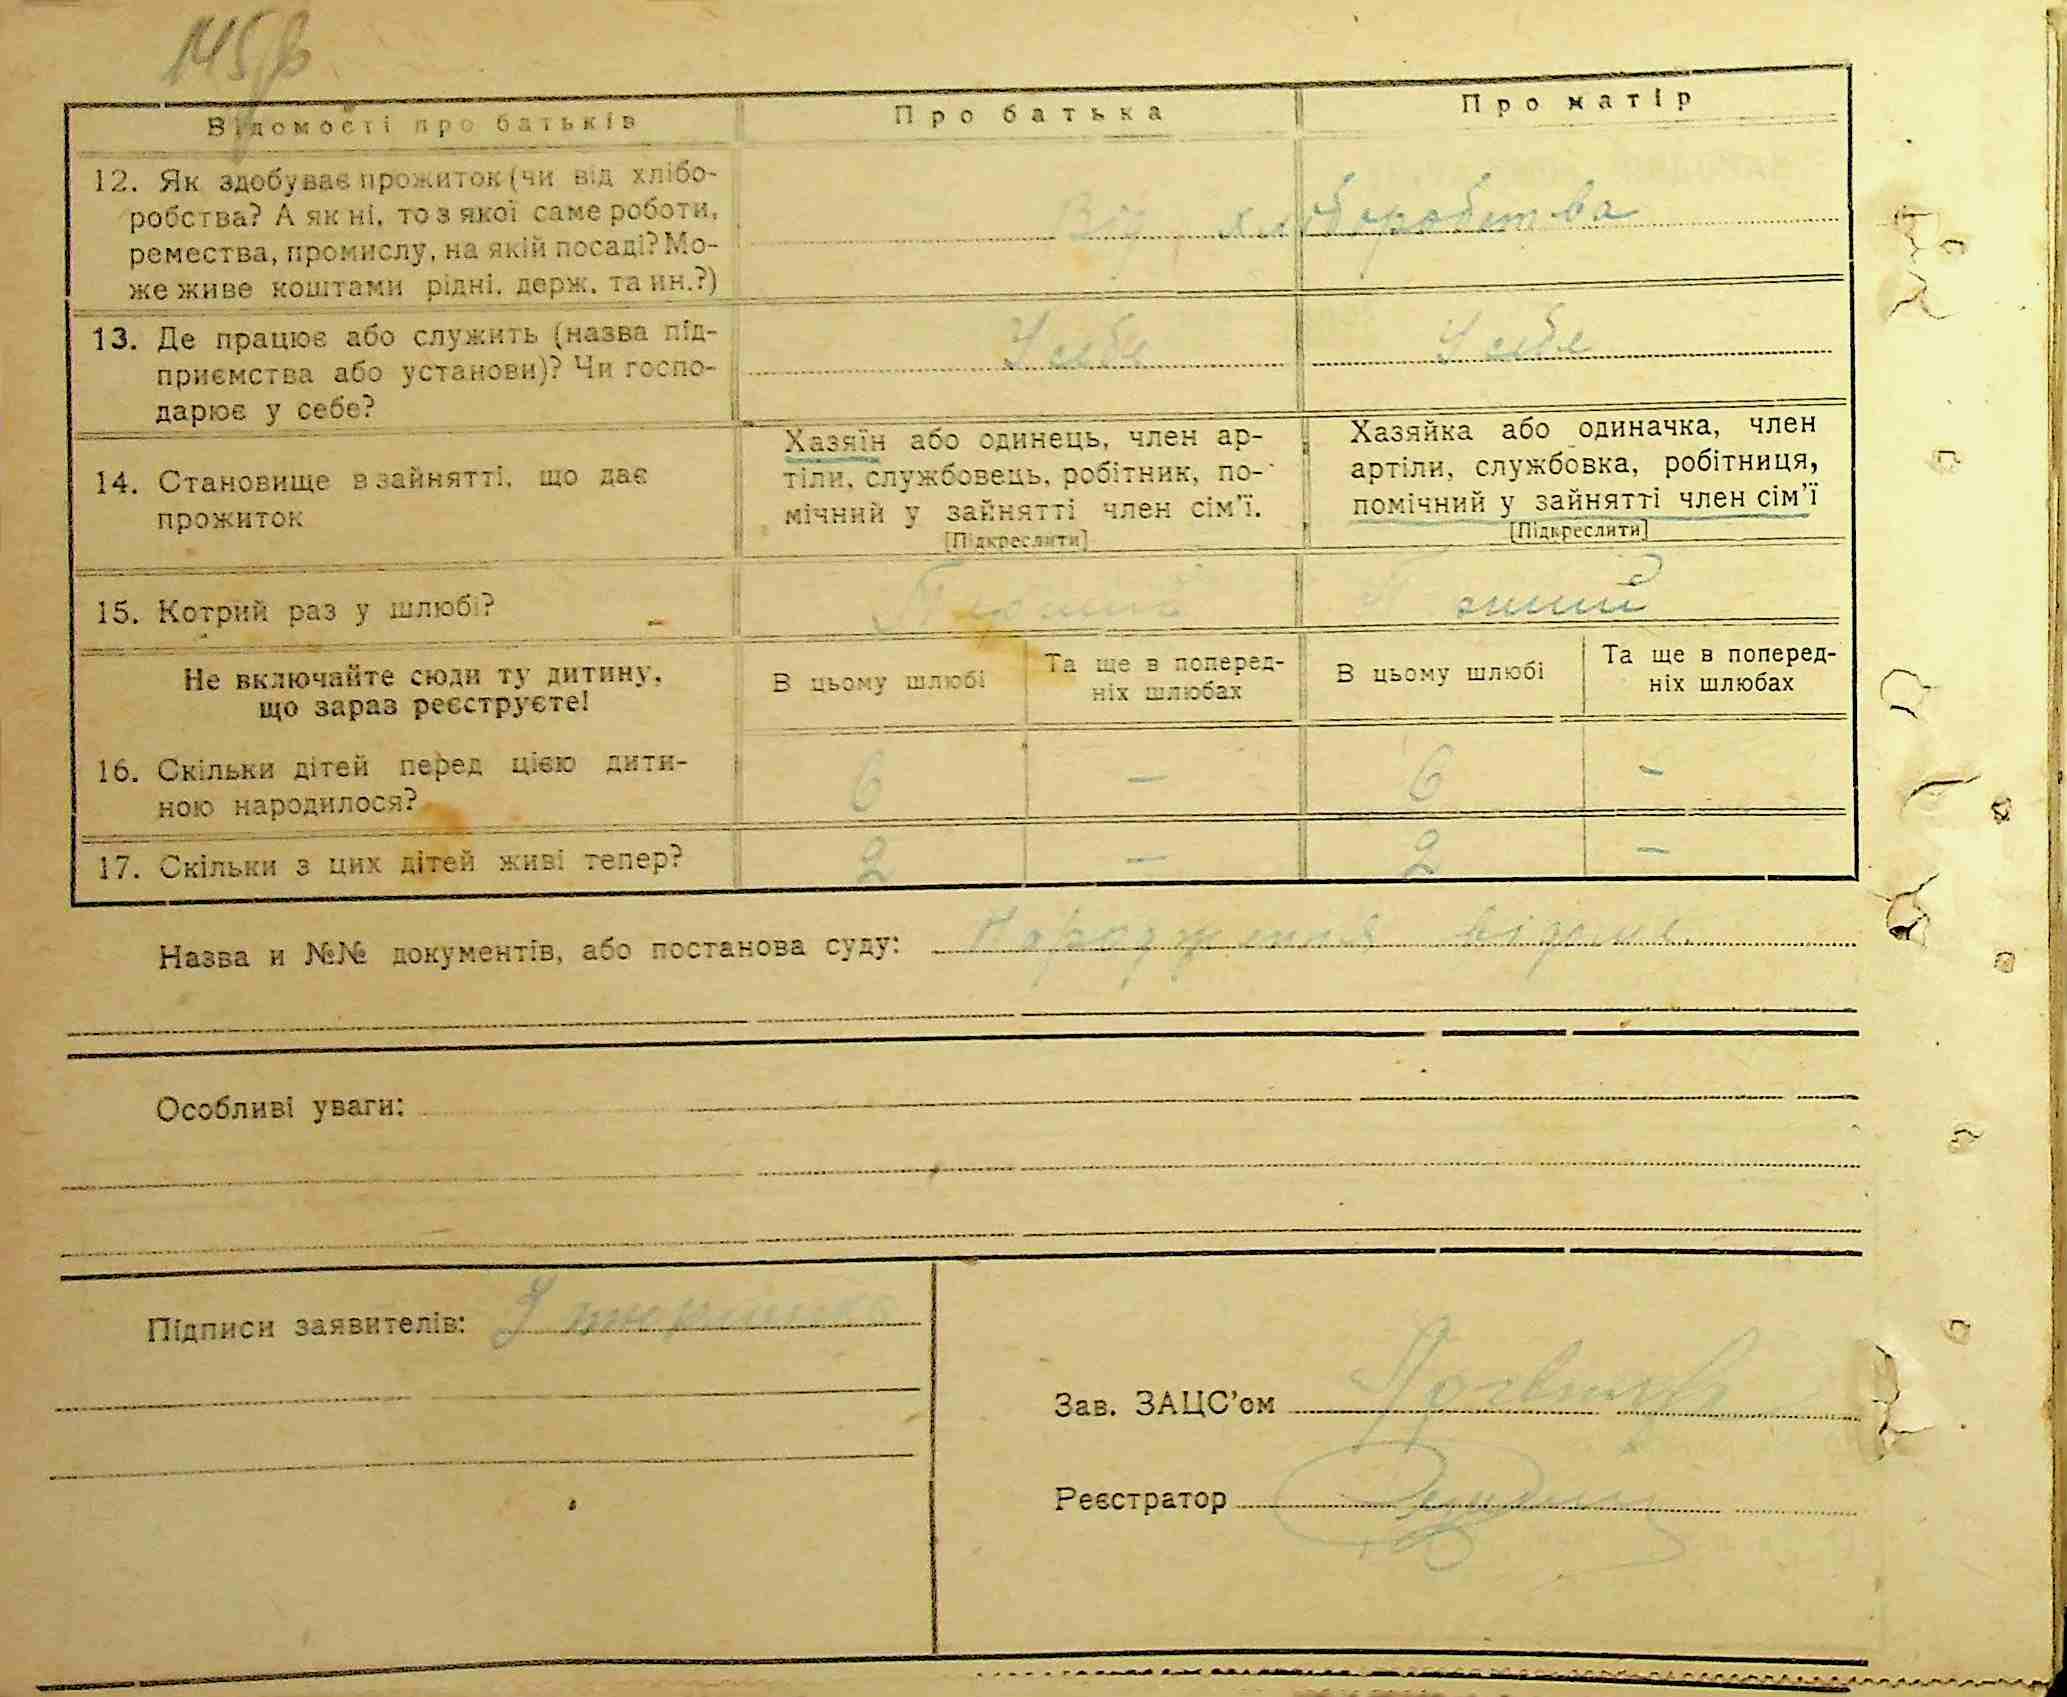 145 в
Відомості про батьків
Про батька
Про матір
12. Як здобуває прожиток (чи від хлібо-
робства? А як ні, то з якої саме роботи,
ремества, промислу, на якій посаді? Мо-
же живе коштами рідні, держ. та ин.?)
Від хліборобства
13. Де працює або служить (назва під-
приємства або установи)? Чи госпо-
дарює у себе?
У себе
У себе
14. Становище в зайнятті, що дає
прожиток
Хазяїн або одинець, член ар-
тіли, службовець, робітник, по-
мічний у зайнятті член сім’ї.
[Підкреслити]
Хазяйка або одиначка, член
артіли, службовка, робітниця,
помічний у зайнятті член сім’ї
[Підкреслити]
15. Котрий раз у шлюбі?
Не включайте сюди ту дитину,
що зараз реєструєте!
В цьому шлюбі
Та ще в поперед-
ніх шлюбах
В цьому шлюбі
Та ще в поперед-
ніх шлюбах
16. Скільки дітей перед цією дити-
ною народилося?
6
—
6
—
17. Скільки з цих дітей живі тепер?
2
—
2
—
Назва и №№ документів, або постанова суду:
Особливі уваги:
Підписи заявителів:
Зав. ЗАЦС’ом
Реєстратор